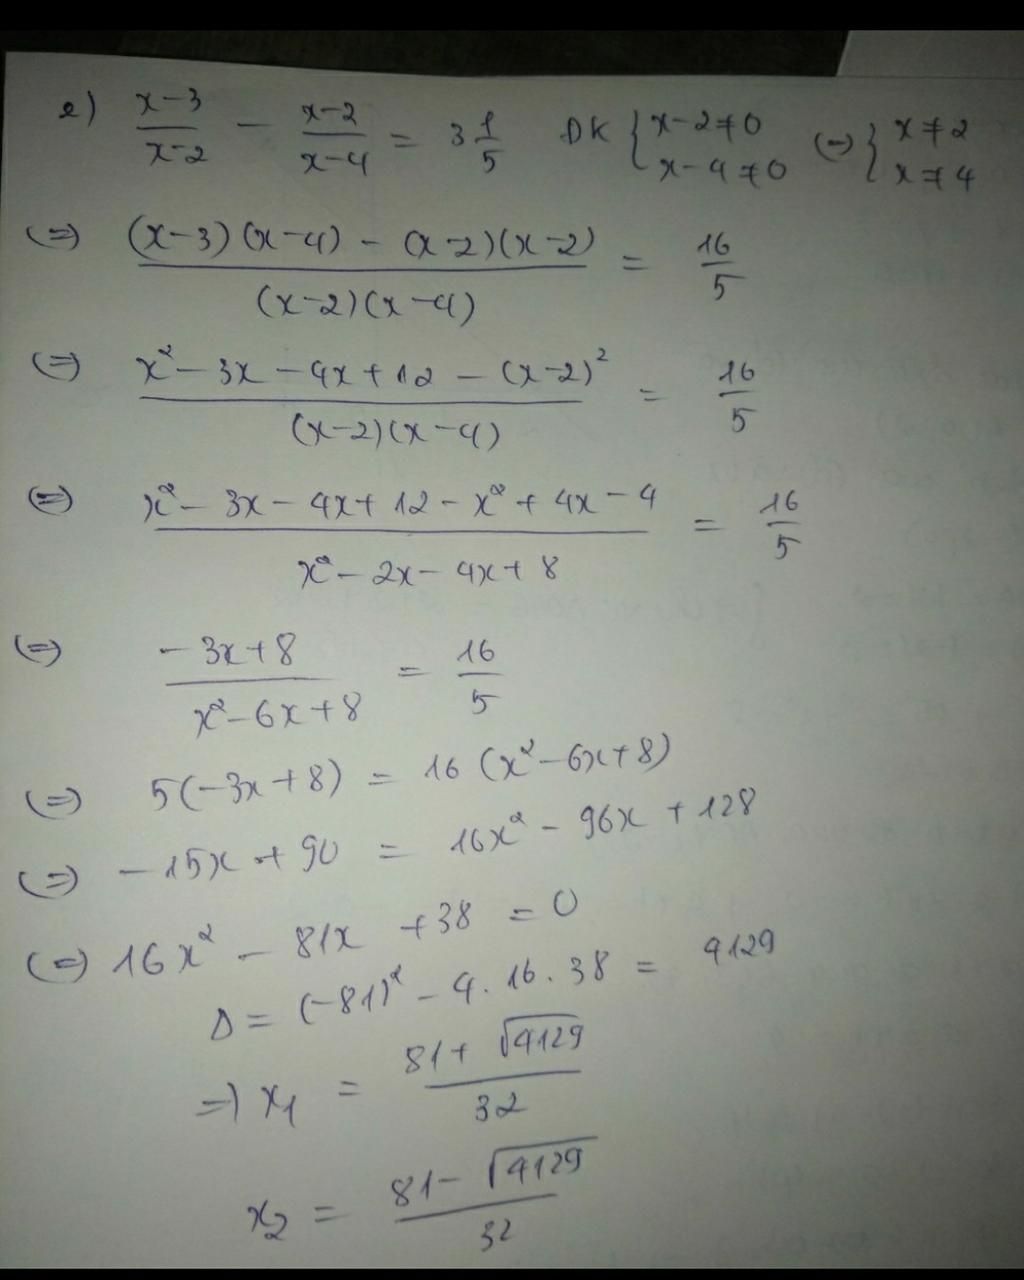 e) \frac{x-3}{x-2} - \frac{x-2}{x-4} = 3\frac{1}{5} ĐK { x-2≠0 x-4≠0 (=) { x≠2 x≠4
(=) \frac{(x-3)(x-4) - (x-2)(x-2)}{(x-2)(x-4)} = \frac{16}{5}
(=) \frac{x²-3x-4x+12-(x-2)²}{(x-2)(x-4)} = \frac{16}{5}
(=) \frac{x²-3x-4x+12-x²+4x-4}{x²-2x-4x+8} = \frac{16}{5}
(=) \frac{-3x+8}{x²-6x+8} = \frac{16}{5}
(=) 5(-3x+8) = 16(x²-6x+8)
(=) -15x+90 = 16x²-96x+128
(=) 16x²-81x+38 = 0
Δ = (-81)²-4.16.38 = 4129
=) x₁ = \frac{81+√4129}{32}
x₂ = \frac{81-√4129}{32}